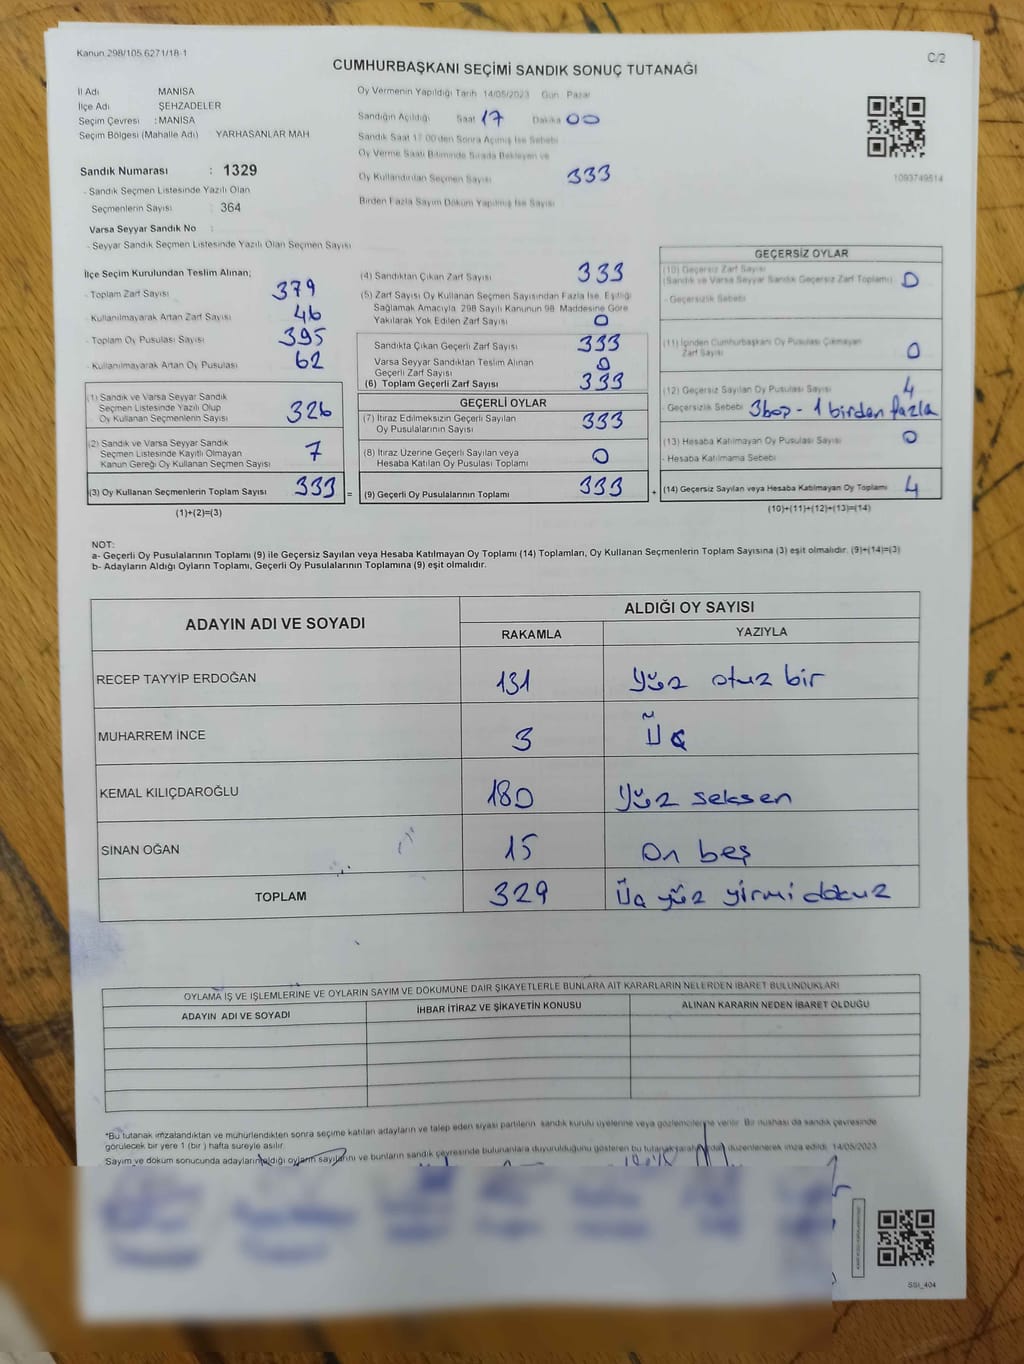 Kanun.298/105.6271/18-1
C/2
CUMHURBAŞKANI SEÇİMİ SANDIK SONUÇ TUTANAĞI
İl Adı MANİSA
İlçe Adı ŞEHZADELER
Seçim Çevresi : MANİSA
Seçim Bölgesi (Mahalle Adı) YARHASANLAR MAH
Sandık Numarası : 1329
- Sandık Seçmen Listesinde Yazılı Olan
Seçmenlerin Sayısı : 364
Varsa Seyyar Sandık No :
- Seyyar Sandık Seçmen Listesinde Yazılı Olan Seçmen Sayısı
Oy Vermenin Yapıldığı Tarih 14/05/2023 Gün Pazar
Sandığın Açıldığı Saat 17 Dakika 00
Sandık Saat 17:00'den Sonra Açılmış İse Sebebi
Oy Verme Saati Bitiminde Sırada Bekleyen ve
Oy Kullandırılan Seçmen Sayısı 333
Birden Fazla Sayım Döküm Yapılmış İse Sayısı
1093749514
İlçe Seçim Kurulundan Teslim Alınan;
- Toplam Zarf Sayısı 379
- Kullanılmayarak Artan Zarf Sayısı 46
- Toplam Oy Pusulası Sayısı 395
- Kullanılmayarak Artan Oy Pusulası 62
(1) Sandık ve Varsa Seyyar Sandık
Seçmen Listesinde Yazılı Olup
Oy Kullanan Seçmenlerin Sayısı 326
(2) Sandık ve Varsa Seyyar Sandık
Seçmen Listesinde Kayıtlı Olmayan
Kanun Gereği Oy Kullanan Seçmen Sayısı 7
(3) Oy Kullanan Seçmenlerin Toplam Sayısı 333 =
(1)+(2)=(3)
(4) Sandıktan Çıkan Zarf Sayısı 333
(5) Zarf Sayısı Oy Kullanan Seçmen Sayısından Fazla İse, Eşitliği
Sağlamak Amacıyla, 298 Sayılı Kanunun 98. Maddesine Göre
Yakılarak Yok Edilen Zarf Sayısı 0
Sandıkta Çıkan Geçerli Zarf Sayısı 333
Varsa Seyyar Sandıktan Teslim Alınan
Geçerli Zarf Sayısı 0
(6) Toplam Geçerli Zarf Sayısı 333
GEÇERLİ OYLAR
(7) İtiraz Edilmeksizin Geçerli Sayılan
Oy Pusulalarının Sayısı 333
(8) İtiraz Üzerine Geçerli Sayılan veya
Hesaba Katılan Oy Pusulası Toplamı 0
(9) Geçerli Oy Pusulalarının Toplamı 333 +
GEÇERSİZ OYLAR
(10) Geçersiz Zarf Sayısı
(Sandık ve Varsa Seyyar Sandık Geçersiz Zarf Toplamı) 0
- Geçersizlik Sebebi
(11) İçinden Cumhurbaşkanı Oy Pusulası Çıkmayan
Zarf Sayısı 0
(12) Geçersiz Sayılan Oy Pusulası Sayısı 4
- Geçersizlik Sebebi 3boş - 1 birden fazla
(13) Hesaba Katılmayan Oy Pusulası Sayısı 0
- Hesaba Katılmama Sebebi
(14) Geçersiz Sayılan veya Hesaba Katılmayan Oy Toplamı 4
(10)+(11)+(12)+(13)=(14)
NOT:
a- Geçerli Oy Pusulalarının Toplamı (9) ile Geçersiz Sayılan veya Hesaba Katılmayan Oy Toplamı (14) Toplamları, Oy Kullanan Seçmenlerin Toplam Sayısına (3) eşit olmalıdır. (9)+(14)=(3)
b- Adayların Aldığı Oyların Toplamı, Geçerli Oy Pusulalarının Toplamına (9) eşit olmalıdır.
ADAYIN ADI VE SOYADI
ALDIĞI OY SAYISI
RAKAMLA YAZIYLA
RECEP TAYYİP ERDOĞAN 131 Yüz otuz bir
MUHARREM İNCE 3 Üç
KEMAL KILIÇDAROĞLU 180 Yüz seksen
SİNAN OĞAN 15 On beş
TOPLAM 329 Üç yüz yirmi dokuz
OYLAMA İŞ VE İŞLEMLERİNE VE OYLARIN SAYIM VE DÖKÜMÜNE DAİR ŞİKAYETLERLE BUNLARA AİT KARARLARIN NELERDEN İBARET BULUNDUKLARI
ADAYIN ADI VE SOYADI İHBAR İTİRAZ VE ŞİKAYETİN KONUSU ALINAN KARARIN NEDEN İBARET OLDUĞU
*Bu tutanak imzalandıktan ve mühürlendikten sonra seçime katılan adayların ve talep eden siyasi partilerin sandık kurulu üyelerine veya gözlemcilerine verilir. Bir nüshası da sandık çevresinde
görülecek bir yere 1 (bir) hafta süreyle asılır.
Sayım ve döküm sonucunda adayların aldığı oyların sayılarını ve bunların sandık çevresinde bulunanlara duyurulduğunu gösteren bu tutanak düzenlenerek imza edildi. 14/05/2023
SSI_404